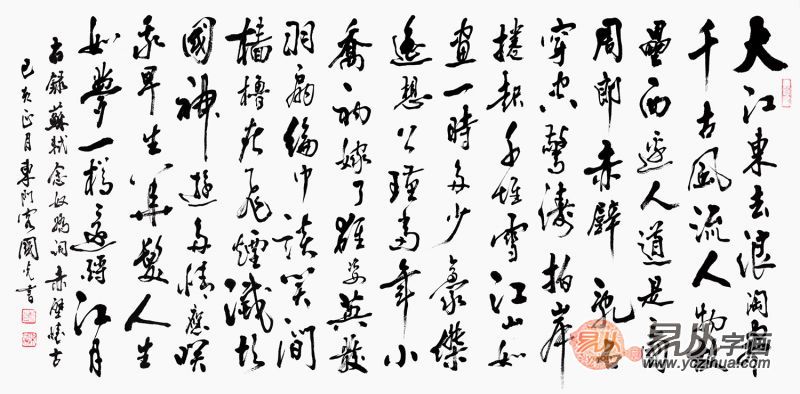 大江東去浪淘盡
千古風流人物故
壘西邊人道是三國
周郎赤壁亂石
穿空驚濤拍岸
捲起千堆雪江山如
畫一時多少豪傑
遙想公瑾當年小
喬初嫁了雄姿英發
羽扇綸巾談笑間
檣櫓灰飛煙滅故
國神遊多情應咲
我早生華髮人生
如夢一樽還酹江月
右錄蘇軾念奴嬌詞赤壁懷古
己亥正月東門客國光書
易从字画
www.yczihua.com